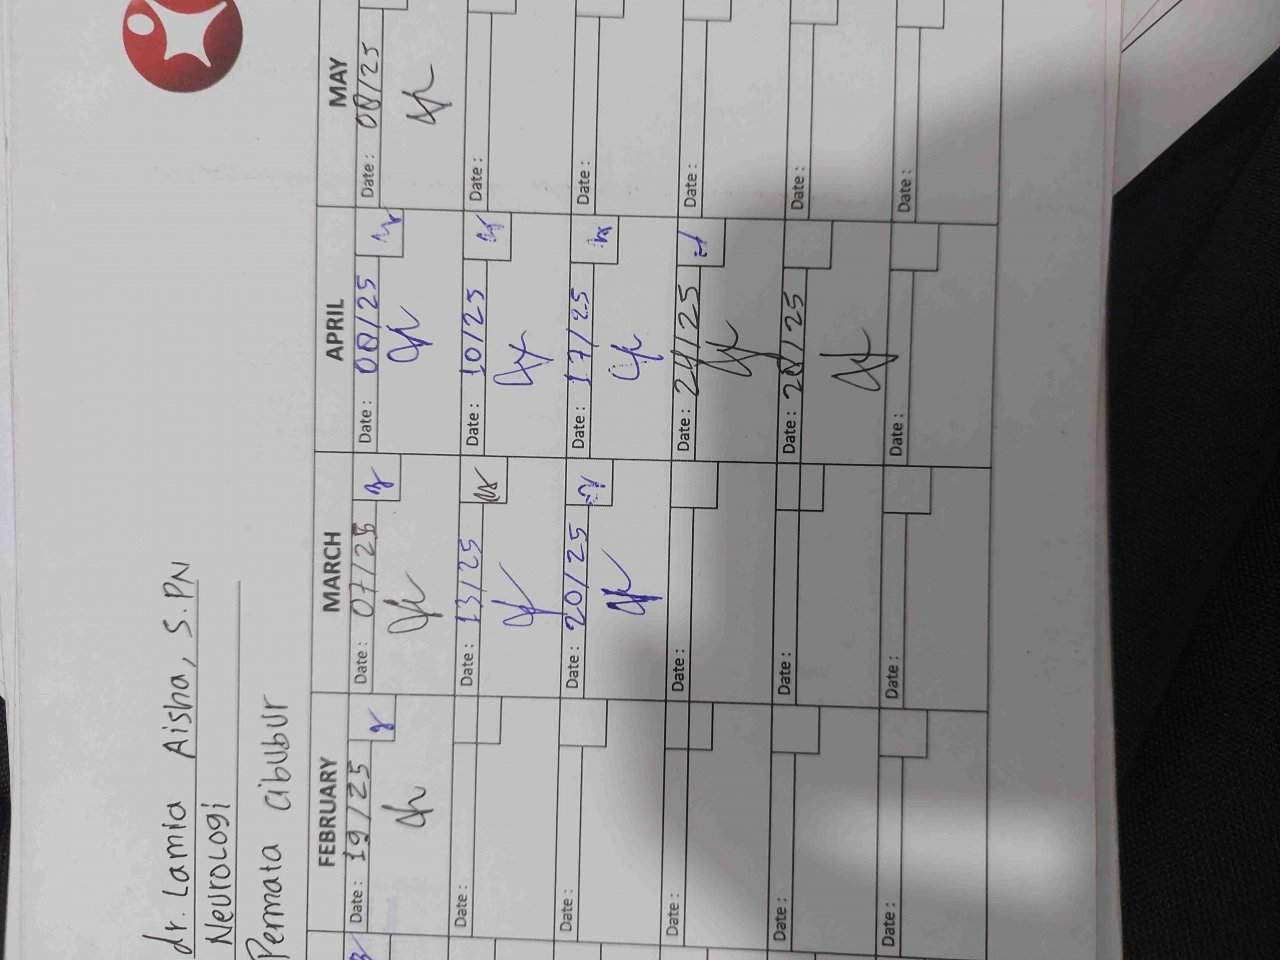 dr. Lamia Aisha, S.PN
Neurologi
Permata Cibubur
FEBRUARY MARCH APRIL MAY
Date : 19/25 Date : 07/25 Date : 08/25 Date : 08/25
Date : Date : 13/25 Date : 10/25 Date :
Date : Date : 20/25 Date : 17/25 Date :
Date : Date : Date : 24/25 Date :
Date : Date : Date : 28/25 Date :
Date : Date : Date : Date :